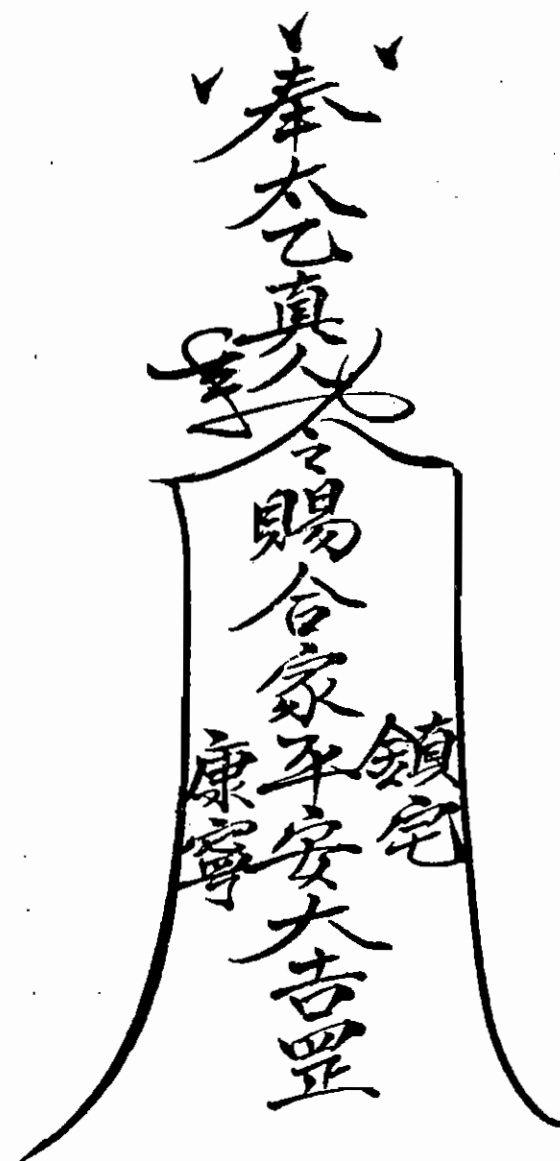 奉太乙真人令賜合家平安大吉罡
鎮宅
康寧